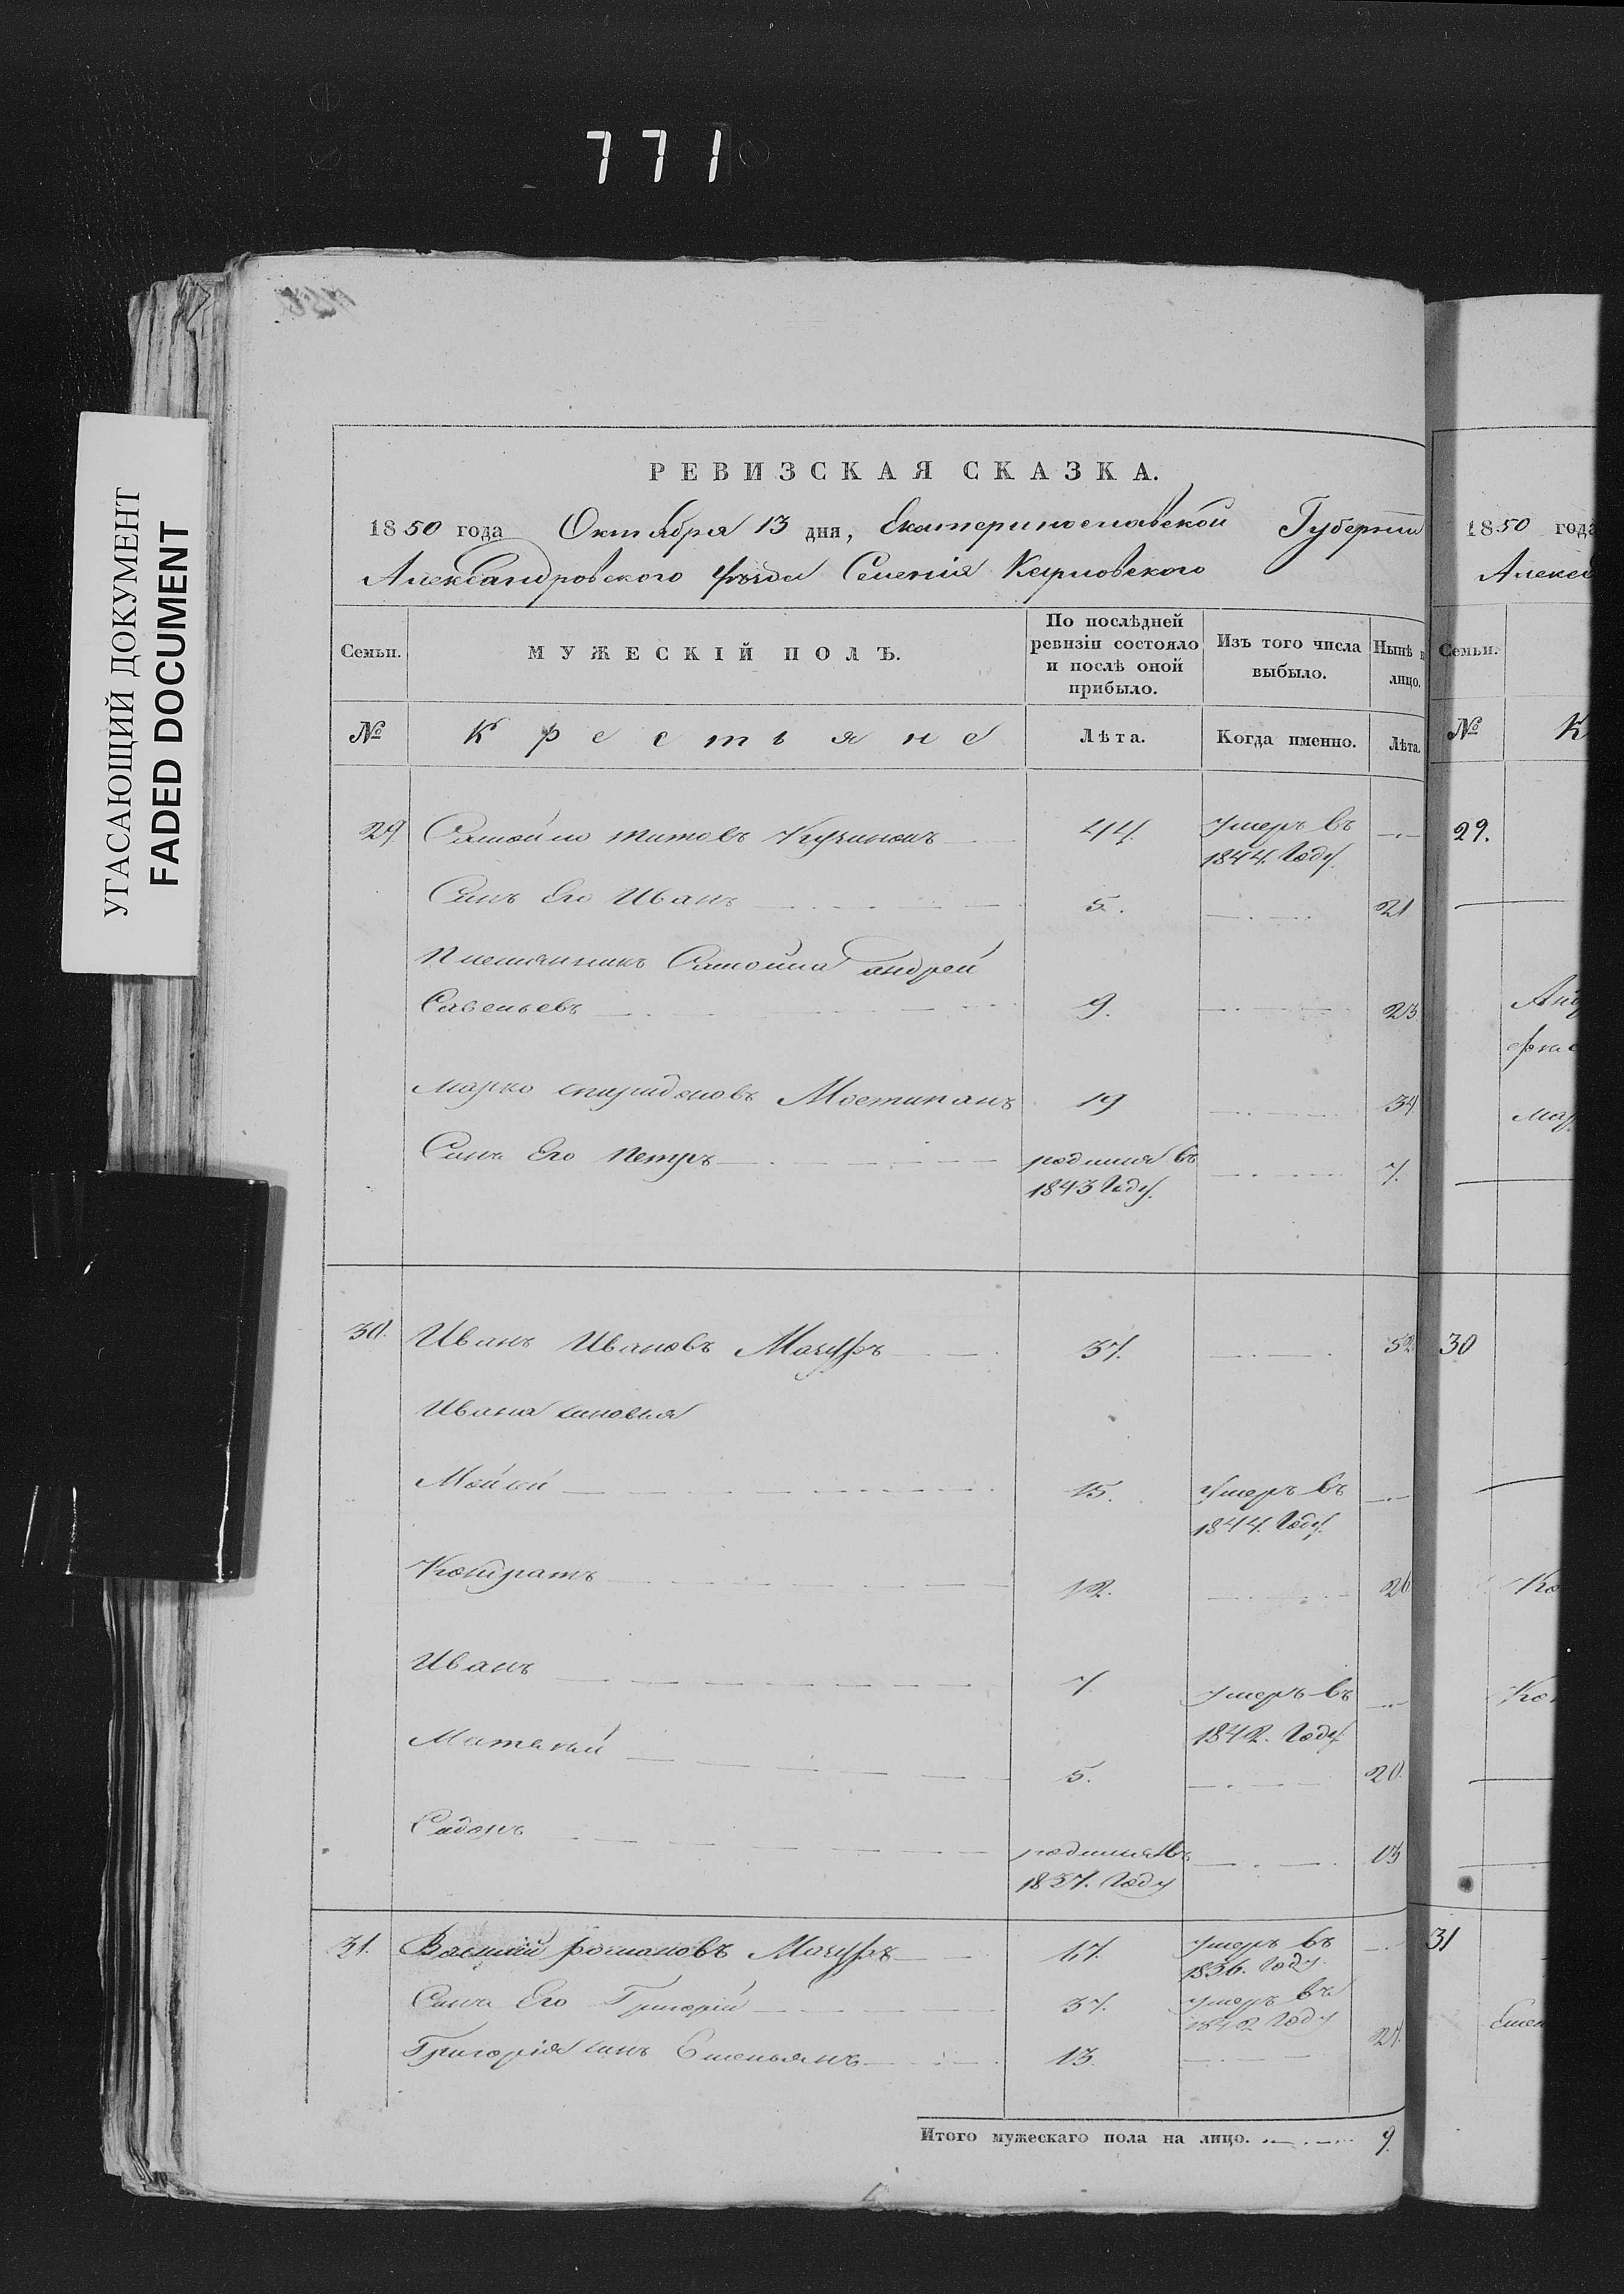 771
УГАСАЮЩИЙ ДОКУМЕНТ
FADED DOCUMENT
РЕВИЗСКАЯ СКАЗКА.
1850 года Октября 13 дня, Екатеринославской Губернии
Александровского уѣзда Селенія
Семьи. МУЖЕСКІЙ ПОЛЪ. По послѣдней ревизіи состояло и послѣ оной прибыло. Изъ того числа выбыло. Нынѣ в лицо.
№ Крестьяне Лѣта. Когда именно. Лѣта.
29 Самойло Титовъ 44. Умеръ въ
1844. Году
Синъ Его Иванъ 5. 21
Племянникъ Самойла андрей
Савельевъ 9. 23
Марко спиридоновъ 19 34
Синъ Его Петръ родился въ 7.
1843 Году.
30. Иванъ Ивановъ Мачуръ 37. 52
Ивана синовья
Мойсей 15. Умеръ въ
1844. Году
Кондратъ 12. 26
Иванъ 7 Умеръ въ
1842. Году
5. 20.
родился въ 13
1837. Году
31. Василий романовъ Мачуръ 67. Умеръ въ
1836. Году
Синъ Его Григорій 37. Умеръ въ
1842 Году
Григорія синъ Емельянъ 13. 27.
Итого мужескаго пола на лицо. 9.
1850 года
Семьи.
№ К
29.
30
31